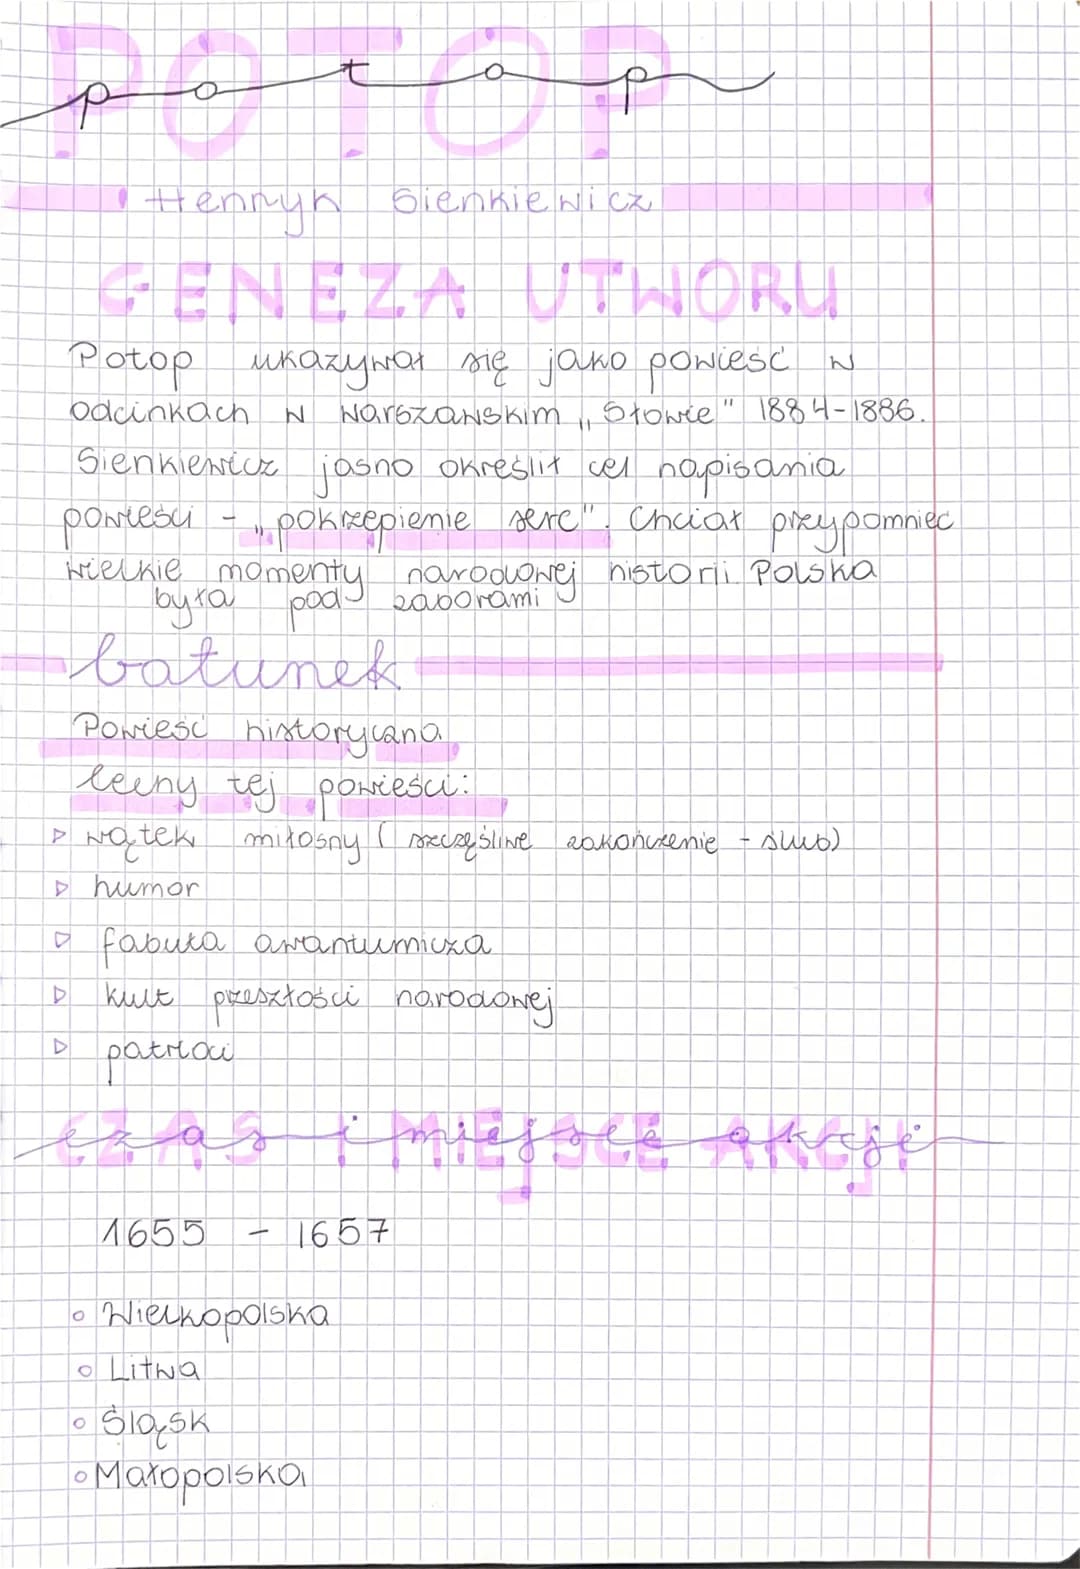 POTOP
potop
Henryk Sienkiewicz
GENEZA UTWORU
Potop ukazywał się jako powieść w
odcinkach w warszawskim „Słowie" 1884-1886.
Sienkiewicz jasno określił cel napisania
powieści - „pokrzepienie serc". Chciał przypomnieć
wielkie momenty narodowej historii. Polska
była pod zaborami
Gatunek
Powieść historyczna
Cechy tej powieści:
▷ wątek miłosny (szczęśliwe zakończenie - ślub)
▷ humor
▷ fabuła awanturnicza
▷ kult przeszłości narodowej
▷ patrioci
CZAS i MIEJSCE AKCJI
czas i miejsce akcji
1655 - 1657
○ Wielkopolska
○ Litwa
○ Śląsk
○ Małopolska